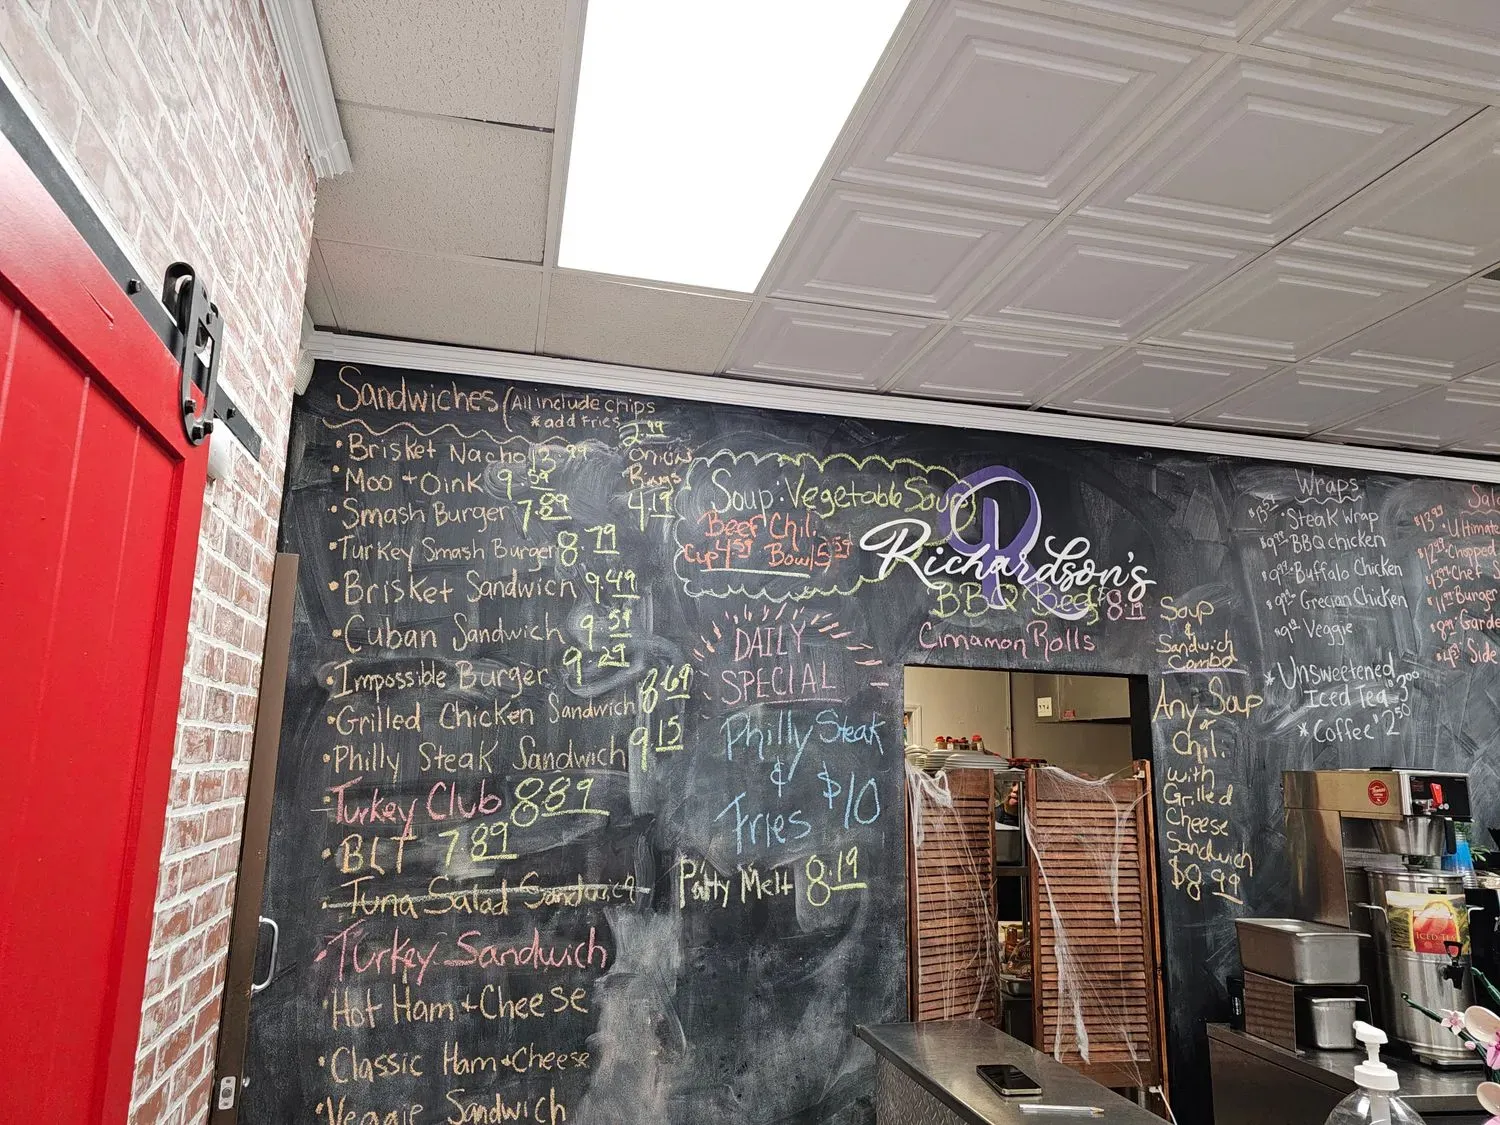 Sandwiches (All include chips
*add Fries 2.99
Onion
Rings
4.19
•Brisket Nacho 13.99
•Moo + Oink 9.59
•Smash Burger 7.89
•Turkey Smash Burger 8.79
•Brisket Sandwich 9.49
•Cuban Sandwich 9.59
•Impossible Burger 9.29
•Grilled Chicken Sandwich 8.69
•Philly Steak Sandwich 9.15
•Turkey Club 8.89
•BLT 7.89
•Tuna Salad Sandwich
•Turkey Sandwich
•Hot Ham + Cheese
•Classic Ham + Cheese
•Veggie Sandwich
Soup: Vegetable Soup
Beef Chili
Cup 4.59 Bowl 5.59
DAILY
SPECIAL
Philly Steak
&
Fries $10
Patty Melt 8.19
R
Richardson's
BBQ Beef 8.19
Cinnamon Rolls
Soup
&
Sandwich
Combo
Any Soup
or
Chili
with
Grilled
Cheese
Sandwich
$8.99
Wraps
•Steak Wrap
•BBQ chicken
•Buffalo Chicken
•Grecian Chicken
•Veggie
*Unsweetened
Iced Tea $3.00
*Coffee $2.50
Ultimate
Chopped
Chef S
Burger
Garde
Side
ICED TEA